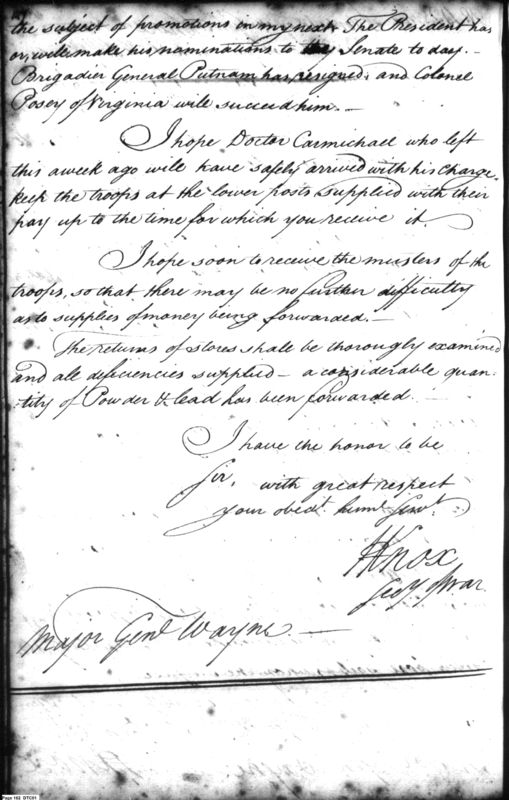 the subject of promotions in my next. The President has
or, will make his nominations to the Senate to day. —
Brigadier General Putnam has resigned, and Colonel
Posey of Virginia will succeed him. —
I hope Doctor Carmichael who left
this a week ago will have safely arrived with his charge.
keep the troops at the lower posts supplied with their
pay up to the time for which you receive it.
I hope soon to receive the musters of the
troops, so that there may be no further difficulty
as to supplies of money being forwarded. —
The returns of stores shall be thorougly examined
and all deficiencies supplied — a considerable quan-
-tity of Powder & lead has been forwarded. —
I have the honor to be
Sir, with great respect
your obedt. humt. Servt.
HKnox
Secy of War
Major Genl. Wayne. —
Page 162 DTC01